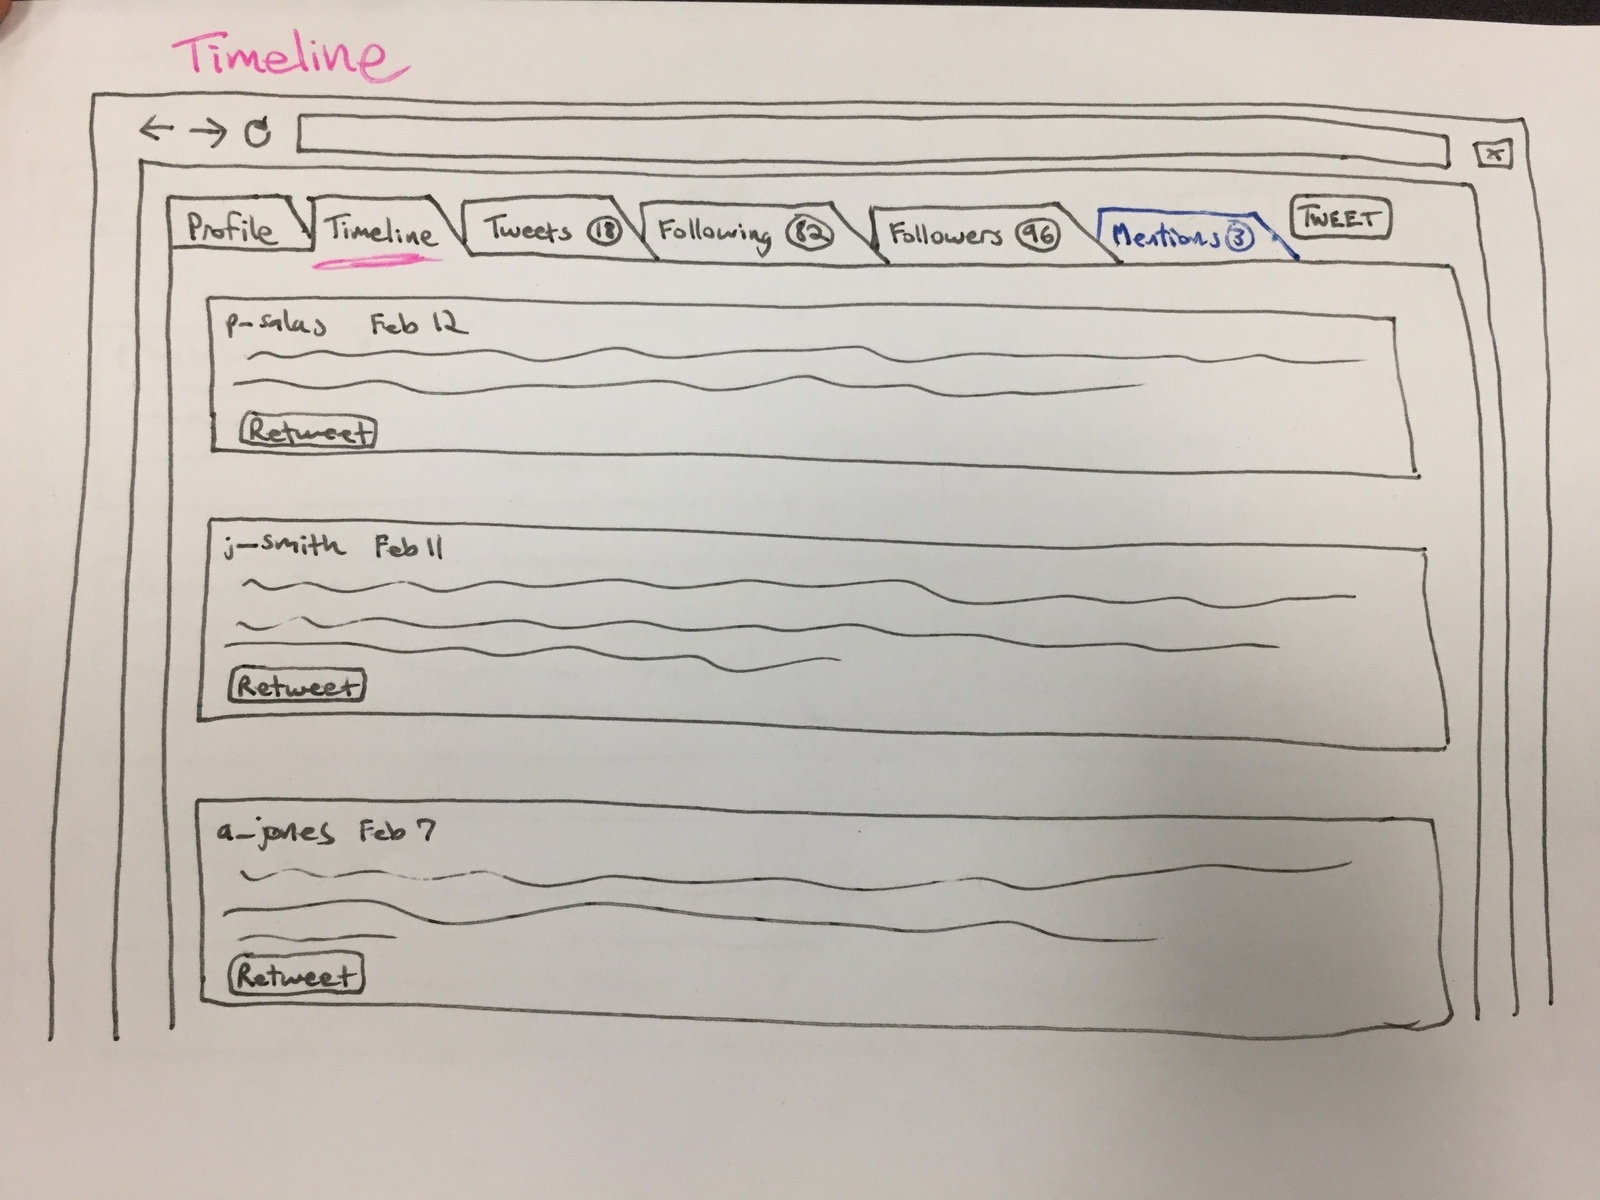 Timeline
Profile Timeline Tweets 18 Following 82 Followers 96 Mentions 3 TWEET
p-salas Feb 12
Retweet
j-smith Feb 11
Retweet
a_jones Feb 7
Retweet